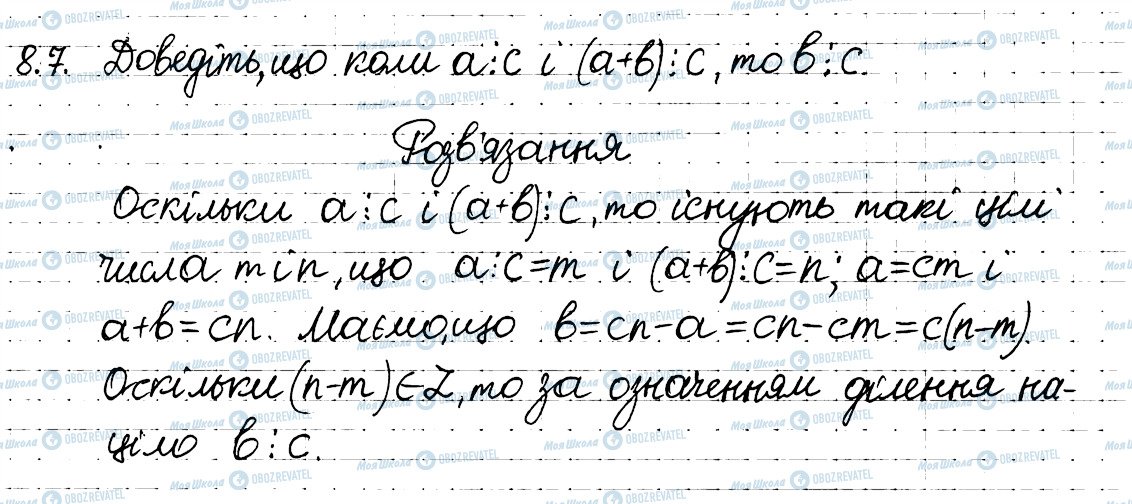 8.7. Доведіть, що коли а⋮с і (а+в)⋮с, то в⋮с.
Розв'язання
Оскільки а⋮с і (а+в)⋮с, то існують такі цілі
числа m і n, що а:с=m і (а+в):с=n; а=сm і
а+в=сn. Маємо, що в=сn-а=сn-сm=с(n-m)
Оскільки (n-m)∈Z, то за означенням ділення на-
ціло в⋮с.